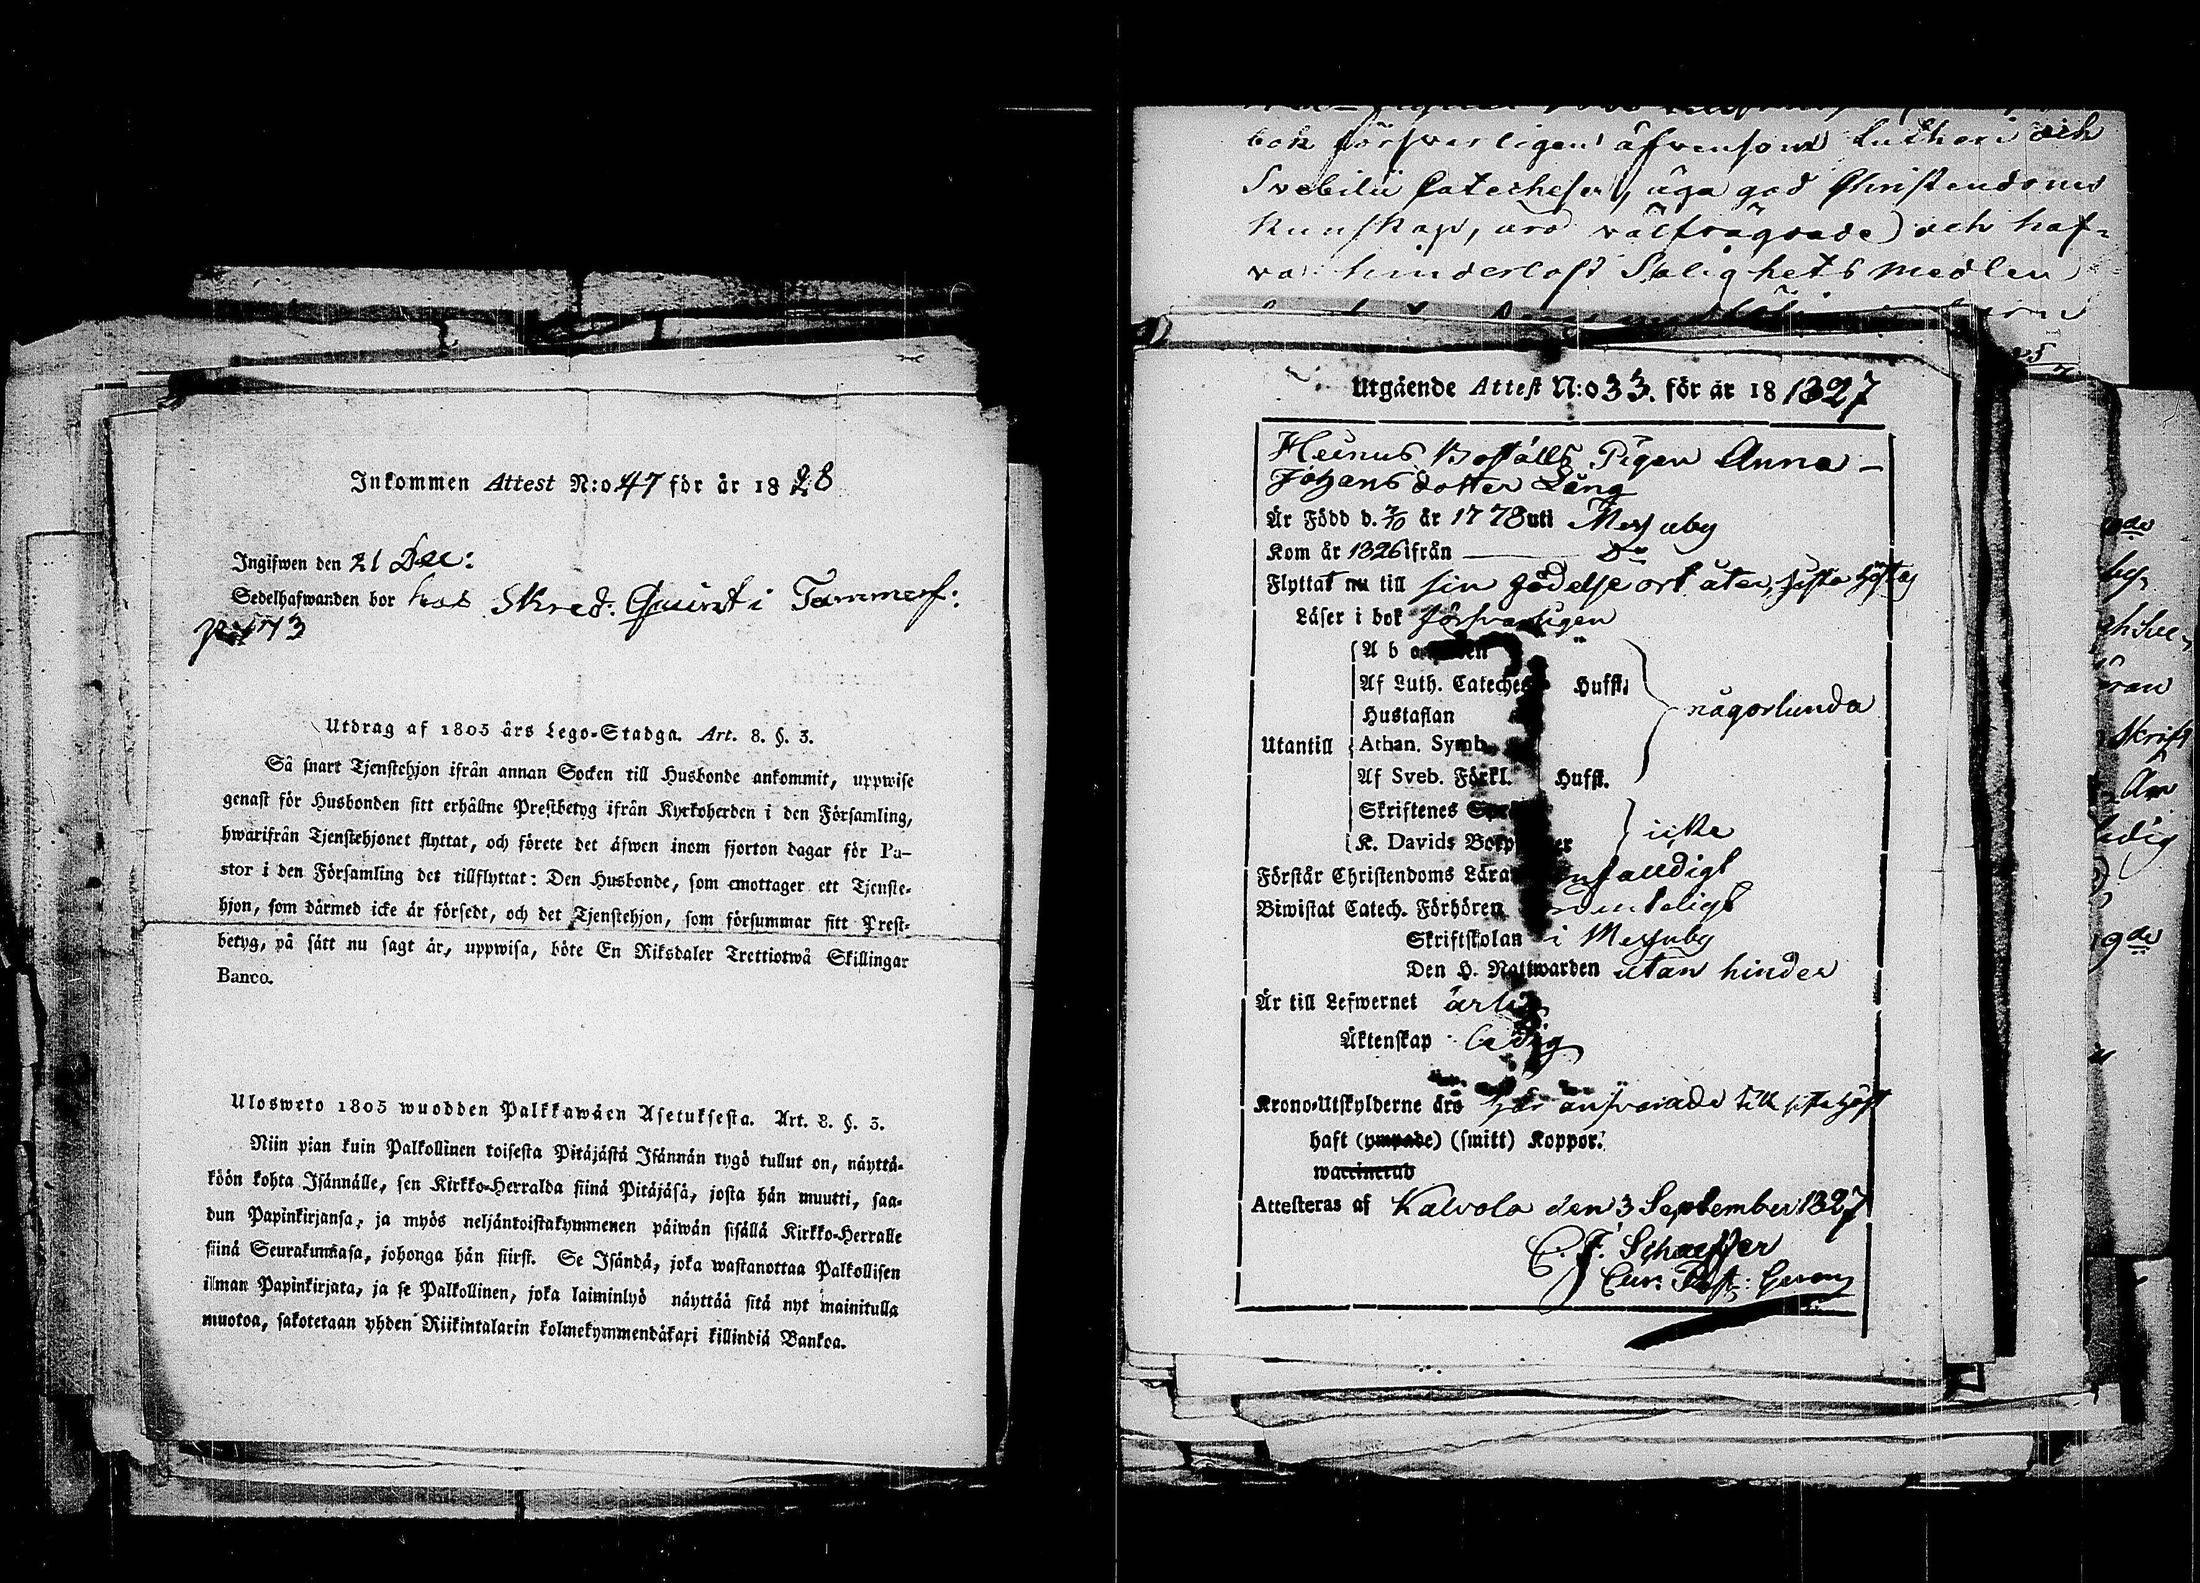 Inkommen Attest N:o 47 för år 1828
Ingifwen den 21 Dec:
Sedelhafwanden bor hos Skred. Qvist i Tammerf:
Utdrag af 1805 års Lego-Stadga. Art. 8. §. 3.
Så snart Tjenstehjon ifrån annan Socken till Husbonde ankommit, uppwise
genast för Husbonden sitt erhållne Prestbetyg ifrån Kyrkoherden i den Församling,
hwarifrån Tjenstehjonet flyttat, och förete det äfwen inom fjorton dagar för Pa-
stor i den Församling det tillflyttat: Den Husbonde, som emottager ett Tjenste-
hjon, som därmed icke är försedt, och det Tjenstehjon, som försummar sitt Prest-
betyg, på sätt nu sagt är, uppwisa, böte En Riksdaler Trettiotwå Skillingar
Banco.
Ulosweto 1805 wuodden Palkkawäen Asetuksesta. Art. 8. §. 3.
Niin pian kuin Palkollinen toisesta Pitäjästä Isännän tygö tullut on, näyttä-
köön kohta Isännälle, sen Kirkko-Herralda siinä Pitäjäsä, josta hän muutti, saa-
dun Papinkirjansa, ja myös neljäntoistakymmenen päiwän sisällä Kirkko-Herralle
siinä Seurakunnasa, johonga hän siirsi. Se Isändä, joka wastanottaa Palkollisen
ilman Papinkirjata, ja se Palkollinen, joka laiminlyö näyttää sitä nyt mainitulla
muotoa, sakotetaan yhden Riikintalarin kolmekymmendäkaxi killindiä Bankoa.
bok försvarligen äfvensom Lutheri och
Svebilii Catecheser, äga god Christendoms
kunskap, äro välfrägdade och haf-
va hinderlöst Salighets medlen
Utgående Attest N:o 33. för år 18 1827
Heinus Boställs Pigan Anna
Johansdotter Lång
Är Född d. 2/10 år 1778 uti Messuby
Kom år 1826 ifrån — Do
Flyttat nu till sin födelse ort åter, sista höstas
Läser i bok försvarligen
A b c boken "
Af Luth. Cateches Hufst.
Hustaflan
någorlunda
Utantill Athan. Symb.
Af Sveb. Förkl. Hufst.
Skriftenes Språk
icke
K. Davids Botpsalmer
Förstår Christendoms Läran enfaldigt
Biwistat Catech. Förhören ordenteligt
Skriftskolan i Messuby
Den H. Nattwarden utan hinder
Är till Lefwernet ärlig
Äktenskap ledig
Krono-Utskylderne äro här ansvarade till sista höst
haft (ympade) (smitt) Koppor.
waccinerad
Attesteras af Kalvola den 3 September 1827
C. F. Schaeffer
Cur. Past: Geren